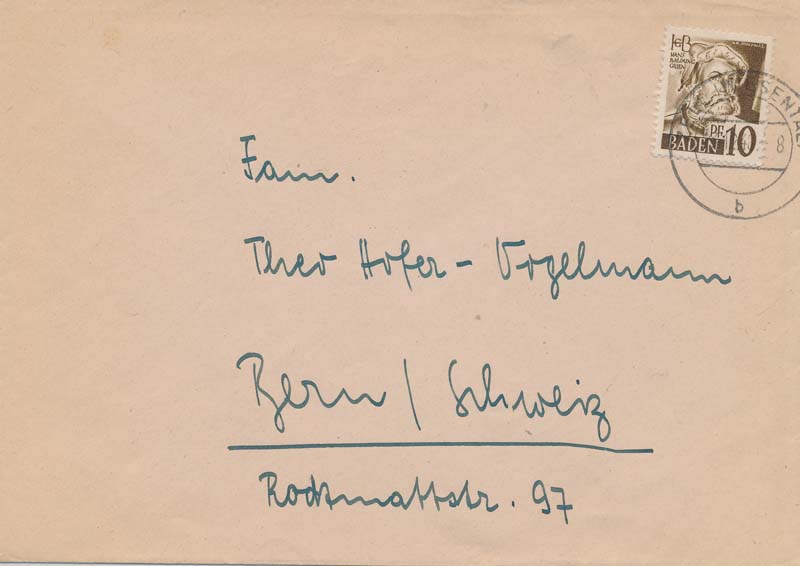 HGB
HANS
BALDUNG
GRIEN
PF.
BADEN 10
8
b
Fam.
Theo Hofer - Vogelmann
Bern / Schweiz
Rodtmattstr. 97